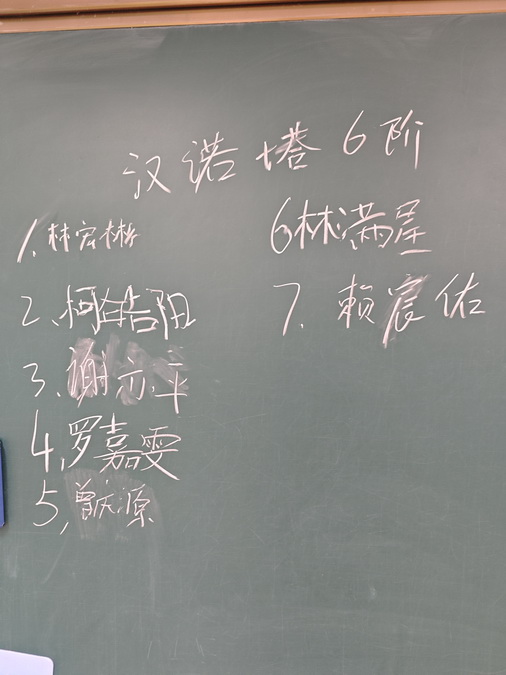 汉诺塔6阶
1.林宏彬
2、柯皓阳
3.谢亦平
4,罗嘉雯
5,曾源
6林满星
7.赖宸佑